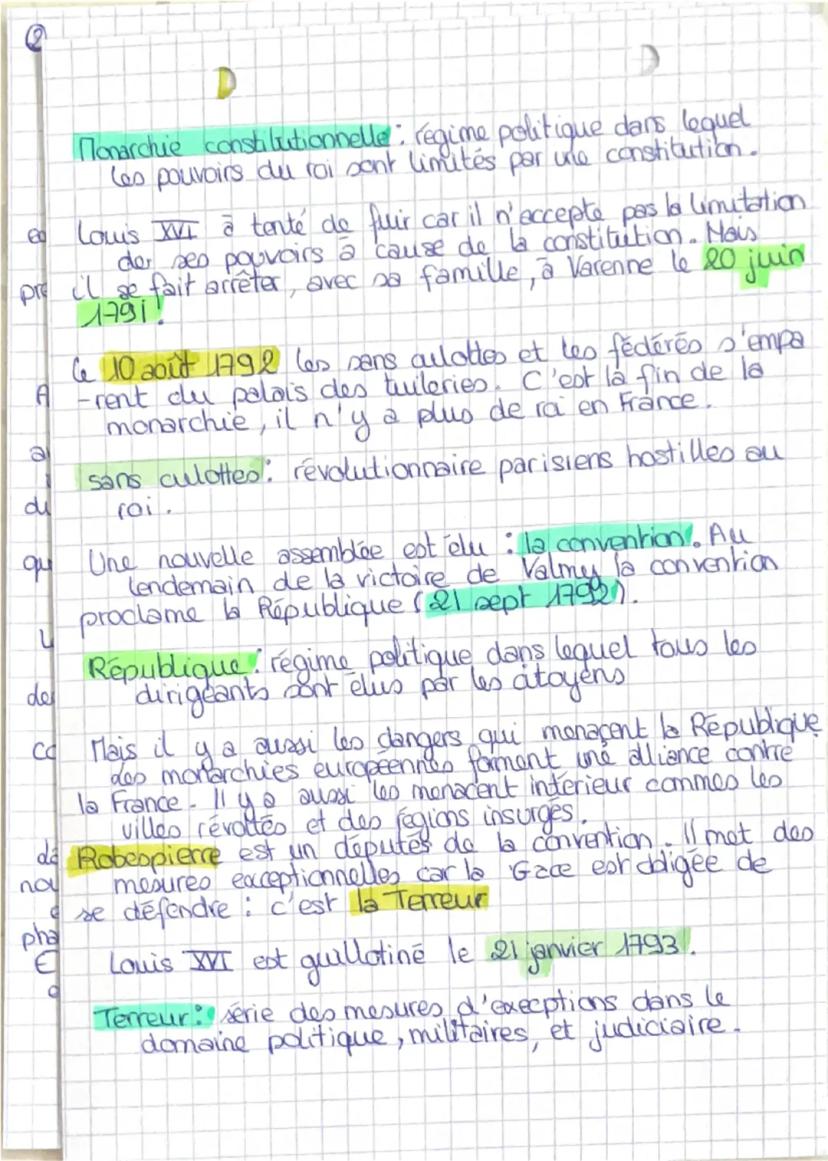 2
Monarchie constitutionnelle : régime politique dans lequel
les pouvoirs du roi sont limités par une constitution.
Louis XVI à tenté de fuir car il n'accepte pas la limitation
der ses pouvoirs à cause de la constitution. Mais
il se fait arrêter, avec sa famille, à Varenne le 20 juin
1791.
Ce 10 août 1792 les sans culottes et les fédérés s'empa
-rent du palais des tuileries. C'est la fin de la
monarchie, il n'y a plus de roi en France.
sans culottes : révolutionnaire parisiens hostilles au
roi.
Une nouvelle assemblée est élu : la convention. Au
lendemain de la victoire de Valmy la convention
proclame la République (21 sept 1792).
République : régime politique dans lequel tous les
dirigeants sont élus par les citoyens
Mais il y a aussi les dangers qui menaçent la République
des monarchies européennes forment une alliance contre
la France. Il y a aussi les menacent intérieur commes les
villes révoltés et des régions insurgés.
Robespierre est un députés de la convention. Il met des
mesures exceptionnelles car la est obligée de
se défendre : c'est la Terreur
Louis XVI est guillotiné le 21 janvier 1793.
Terreur : série des mesures d'execptions dans le
domaine politique, militaires, et judiciaire.